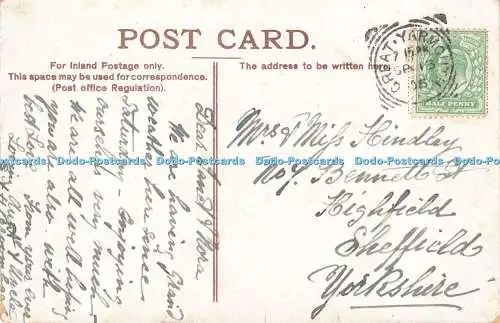 POST CARD.
For Inland Postage only.
This space may be used for correspondence.
(Post office Regulation).
The address to be written here
GREAT YARMOUTH
HALF PENNY
Dear Aunt & Nora
We are having grand
weather here since
Saturday - Enjoying
ourselves very much
We are all well hoping
you are also with
best love from
Mrs & Miss Hindley
No 7 Bennett St
Highfield
Sheffield
Yorkshire
Dodo-Postcards Dodo-Postcards Dodo-Postcards Dodo-Postcards Dodo-Postcards Dodo-Postcards
Dodo-Postcards Dodo-Postcards Dodo-Postcards Dodo-Postcards Dodo-Postcards Dodo-Postcards